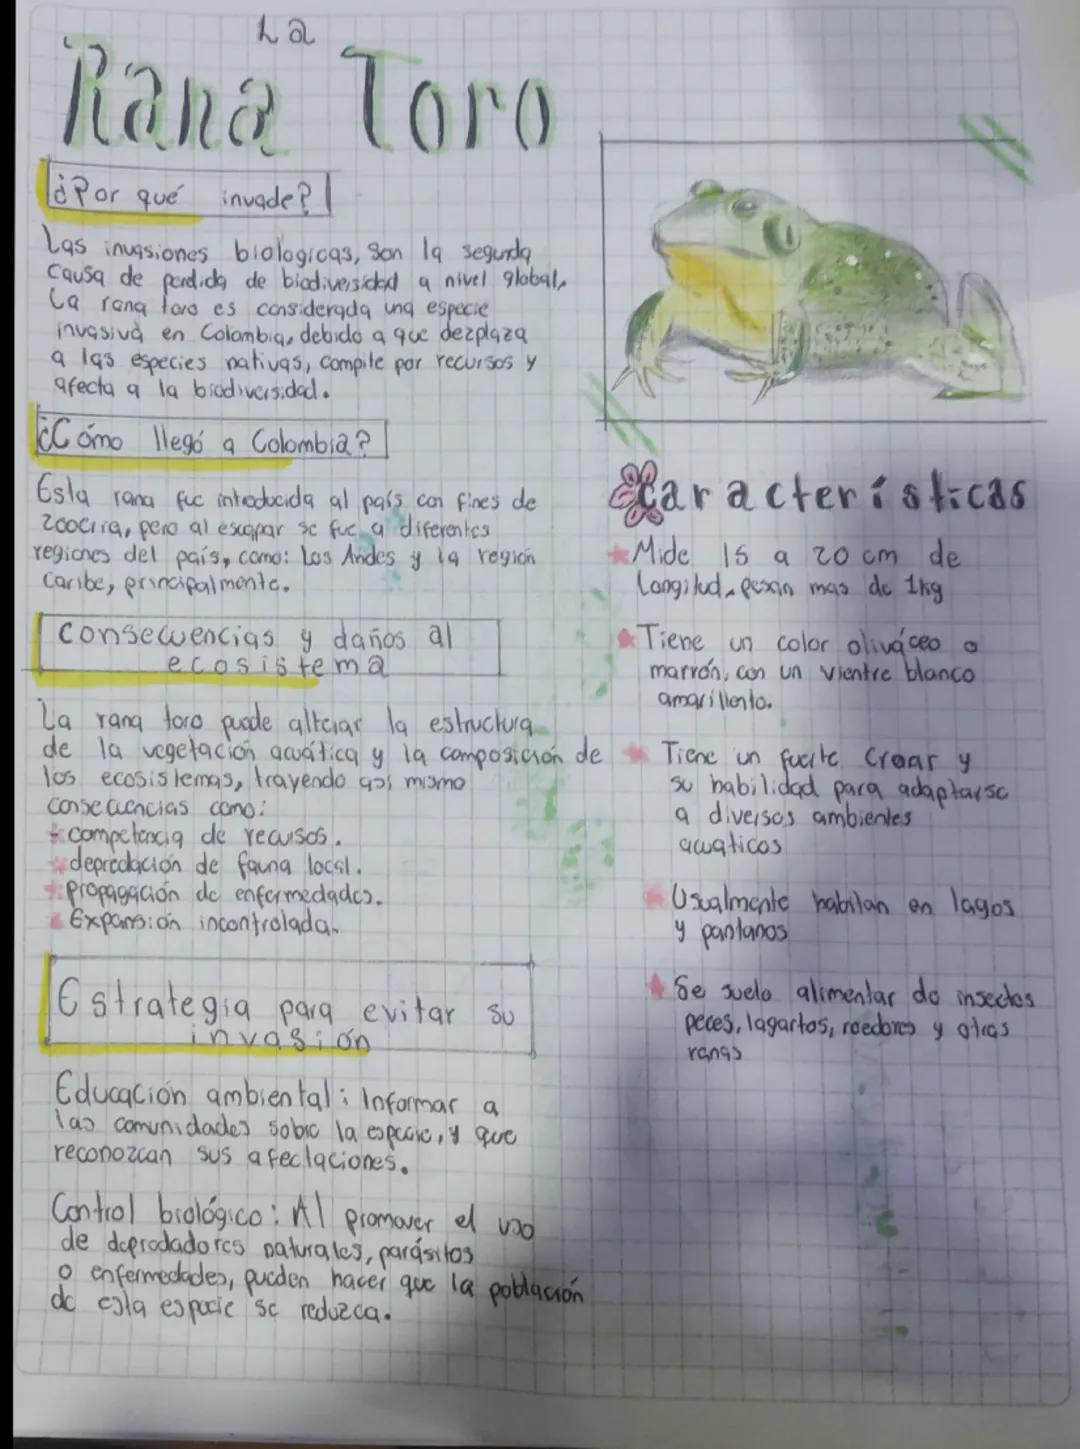 La
Rana Toro
¿Por qué invade?
Las invasiones biologicas, son la segunda
causa de perdida de biodiversidad a nivel global,
La rana toro es considerada una especie
invasiva en Colombia, debido a que dezplaza
a las especies nativas, compite por recursos y
afecta a la biodiversidad.
¿Cómo llegó a Colombia?
Esta rana fue introducida al país con fines de
zoocria, pero al escapar se fue a diferentes
regiones del país, como: Los Andes y la región
Caribe, principalmente.
Consecuencias y daños al
ecosistema
La rana toro puede alterar la estructura
de la vegetación acuática y la composición de
los ecosistemas, trayendo asi mismo
consecuencias como:
* competencia de recursos.
* depredación de fauna local.
* propagación de enfermedades.
* Expansión incontrolada.
Estrategia para evitar su
invasión
Educación ambiental: Informar a
las comunidades sobre la especie, y que
reconozcan sus afectaciones.
Control biológico: Al promover el uso
de depredadores naturales, parásitos
o enfermedades, pueden hacer que la población
de esta especie se reduzca.
Características
* Mide 15 a 20 cm de
Longitud, pesan mas de 1kg
* Tiene un color oliváceo o
marrón, con un vientre blanco
amarillento.
* Tiene un fuerte croar y
su habilidad para adaptarse
a diversos ambientes
acuaticos
* Usualmente habitan en lagos
y pantanos
* Se suele alimentar de insectos
peces, lagartos, roedores y otras
ranas